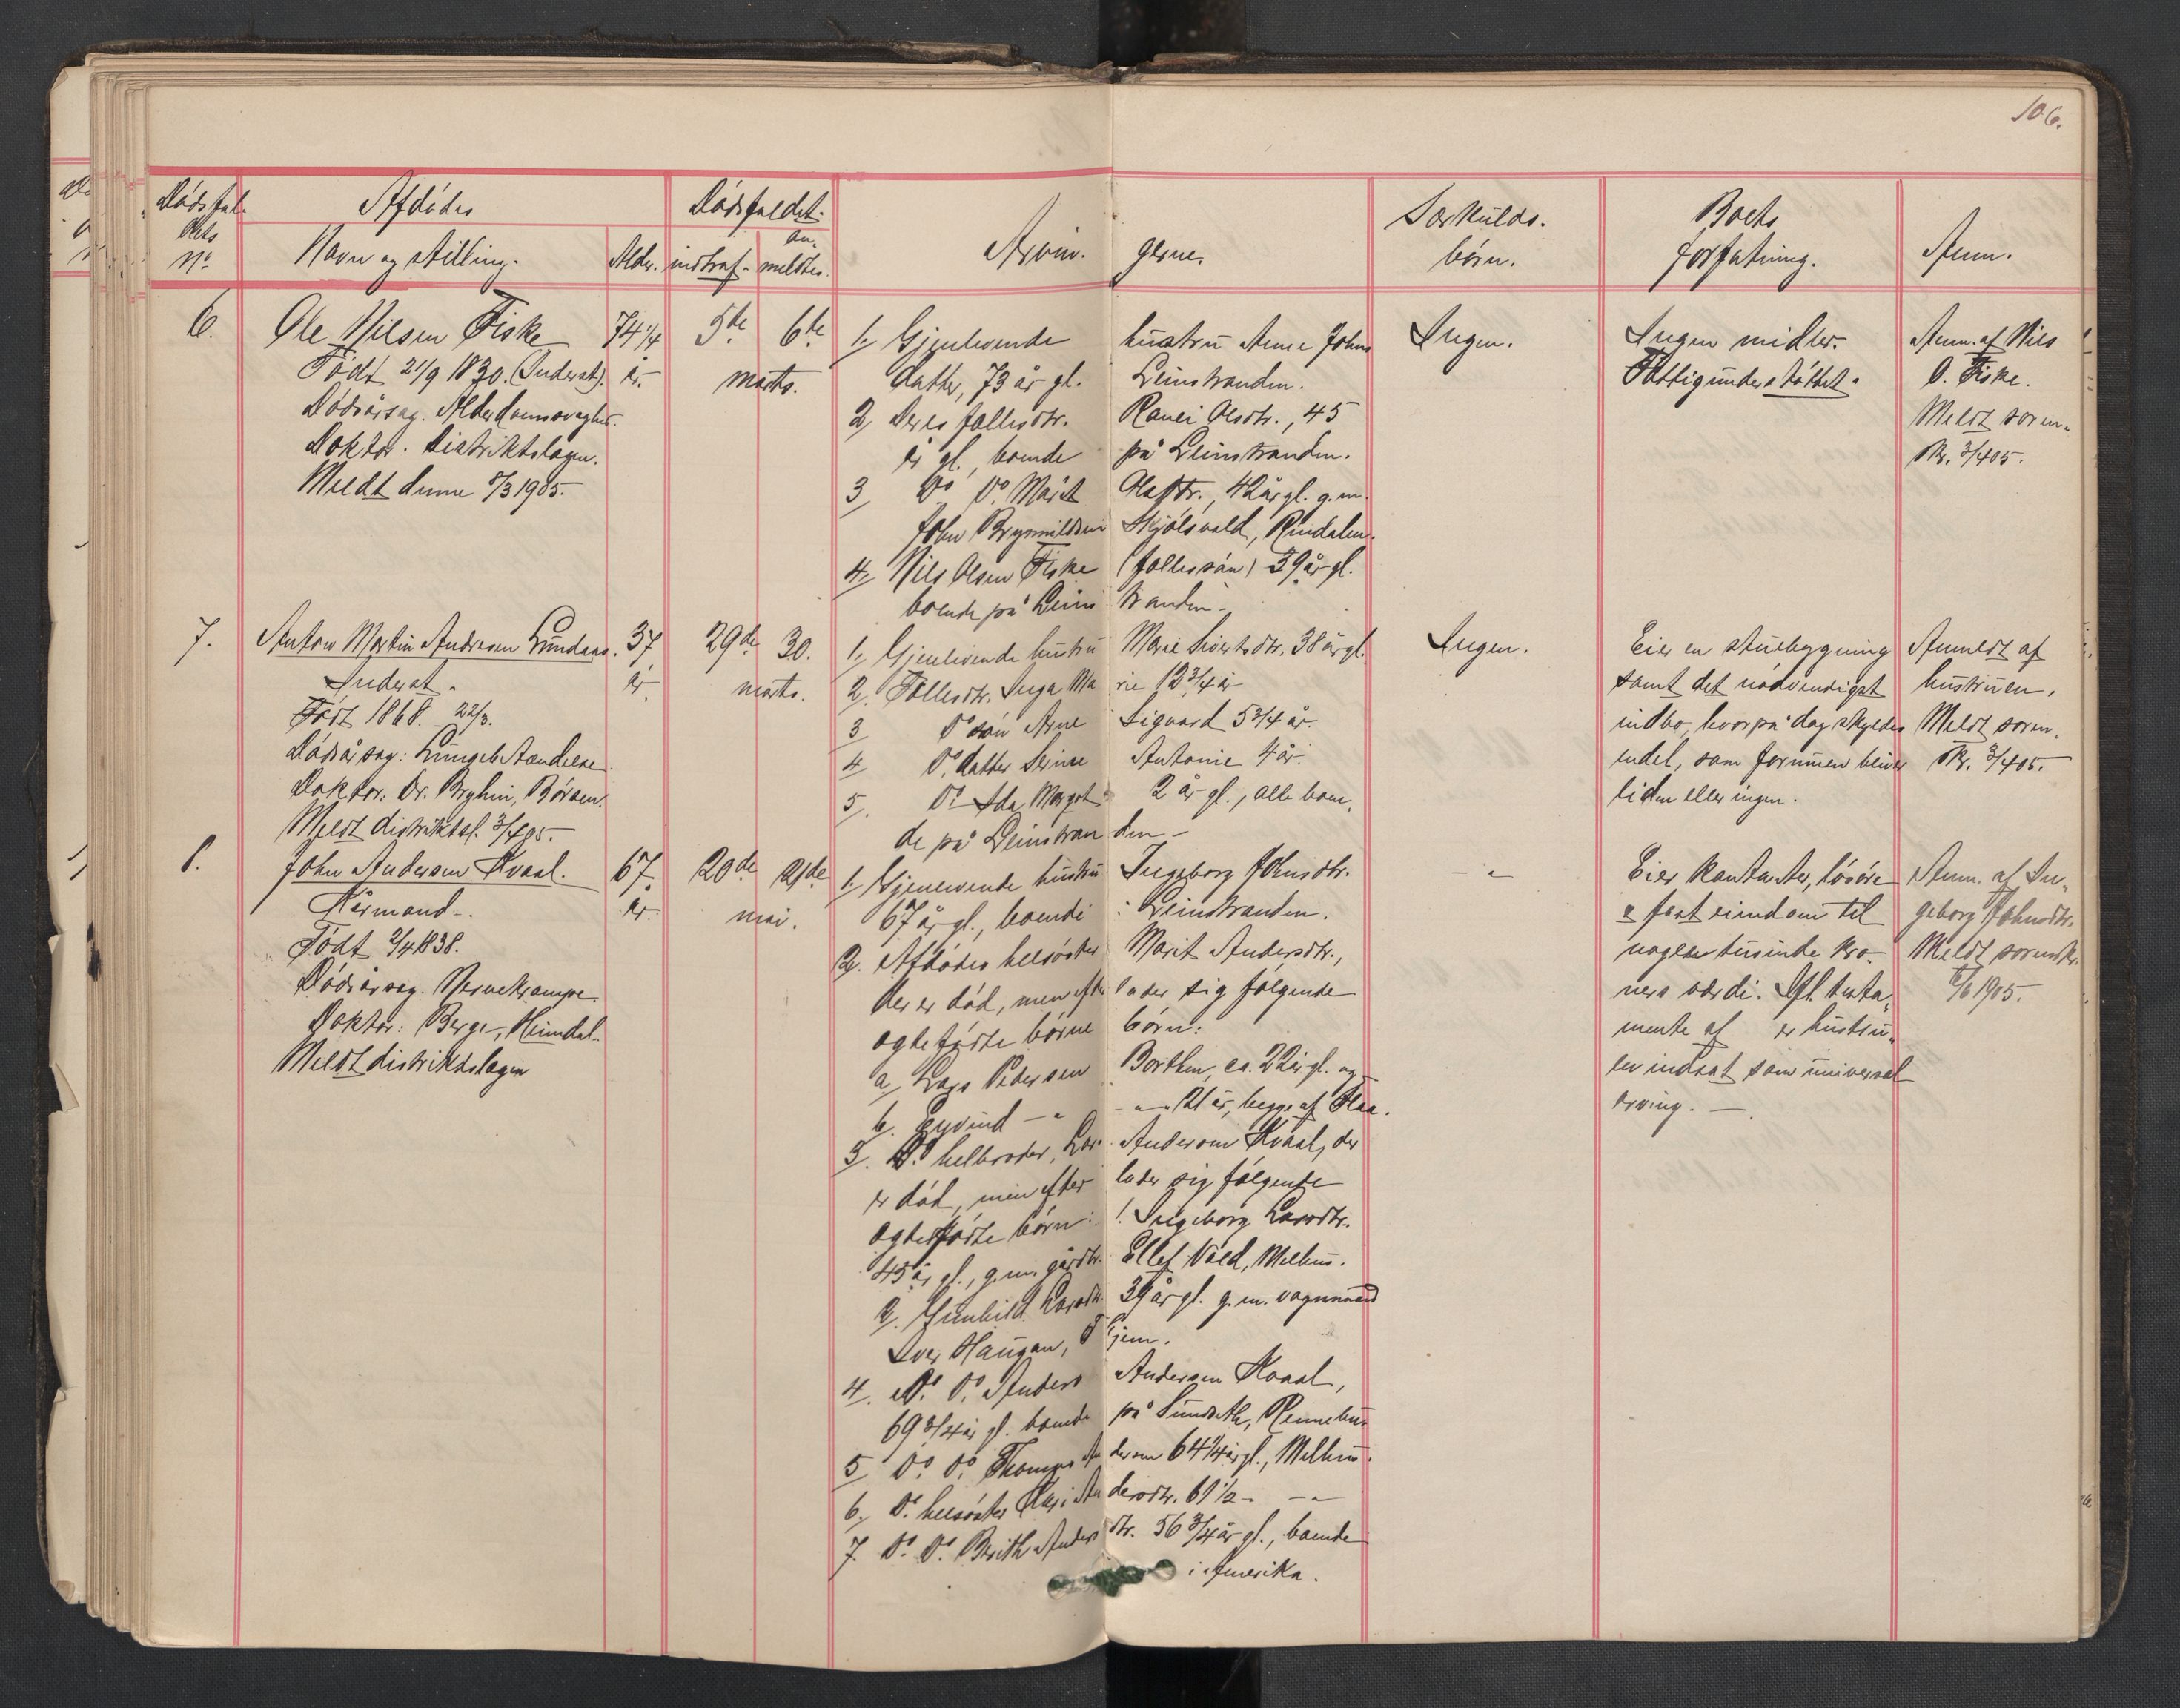 106.
Dødsfal-
dets
No
Afdødes
Navn og stilling.
Alder.
Dødsfaldet
indtraf.
an-
meldtes.
Arvin-
gerne.
Særkulds-
børn.
Boets
forfatning.
Anm.
6.
Ole Nilsen Fiske
Født 21/9 1830. (Inderst).
Dødsårsag. Alderdomssvaghed.
Doktor. Distriktslægen.
Meldt denne 8/3 1905.
74 1/4
år.
5te
6te
marts.
1, Gjenlevende hustru Anne Johns
datter, 73 år gl. Leinstranden.
2, Deres fællesdtr. Ranei Olsdtr., 45
år gl., boende på Leinstranden.
3, Do Do Marit Olsdtr., 42 år gl. g. m.
John Brynnildsen Skjølsvold, Rindalen.
4, Nils Olsen Fiske (fællessøn) 39 år gl.
boende på Leinstranden.
Ingen.
Ingen midler.
Fattigunderstøttet.
Anm. af Nils
O. Fiske.
Meldt soren-
skr. 3/4 05.
7.
Anton Martin Andresen Lundaas.
Inderst.
Født 1868. 22/3.
Dødsårsag: Lungebetændelse.
Doktor: Dr. Bryhn, Børsen.
Meldt distriktsl. 3/4 05.
37
år.
29de
30.
marts.
1, Gjenlevende hustru Marie Sivertsdtr. 38 år gl.
2, Fællesdtr. Inga Marie 12 3/4 år
3 Do søn Arne Sigvard 5 3/4 år.
4 Do datter Serine Antonie 4 år.
5. Do Ida Margot 2 år gl., alle boen-
de på Leinstranden
Ingen.
Eier en stuebygning
samt det nødvendigst
indbo, hvorpå dog skyldes
endel, som formuen bliver
liden eller ingen.
Anmeldt af
hustruen.
Meldt soren-
skr. 3/4 05.
8.
John Andersen Kvaal.
Kårmand.
Født 2/4 1838.
Dødsårsag. Nervekrampe.
Doktor: Berge, Heimdal.
Meldt distriktslægen
67
år.
20de
21de
mai.
1, Gjenlevende hustru Ingeborg Johnsdtr.
67 år gl., boende i Leinstranden.
2, Afdødes helsøster Marit Andersdtr.,
der er død, men efterlader sig følgende
ægtefødte børn:
a, Lars Pedersen Borthen, ca. 22 år gl. og
b, Eyvind -"- -"- 21 år, begge af Flaa.
3. Do helbroder, Lars Andersen Kvaal, der
er død, men efterlader sig følgende
ægtefødte børn: 1. Ingeborg Larsdtr.
45 år gl., g. m. gårdbr. Ellef Vold, Melhus.
2. Gunhild Larsdtr. 39 år gl. g. m. vognmand
Iver Haugan, Thjem.
4. Do Do Anders Andersen Kvaal,
69 3/4 år gl. boende på Sundseth, Rennebu
5 Do Do Thomas Andersen 64 1/4 år gl., Melhus.
6. Do helsøster Kari Andersdtr. 61 1/2 - -"-
7. Do Do Berith Andersdtr. 56 3/4 år gl., boende
i Amerika.
-"-
Eier kontanter, løsøre
& fast eiendom til
nogle tusinde kro-
ners værdi. Ifl. testa-
mente af er hustru-
en indsat som universal
arving.
Anm. af In-
geborg Johnsdtr.
Meldt sorenskr.
6/6 1905.